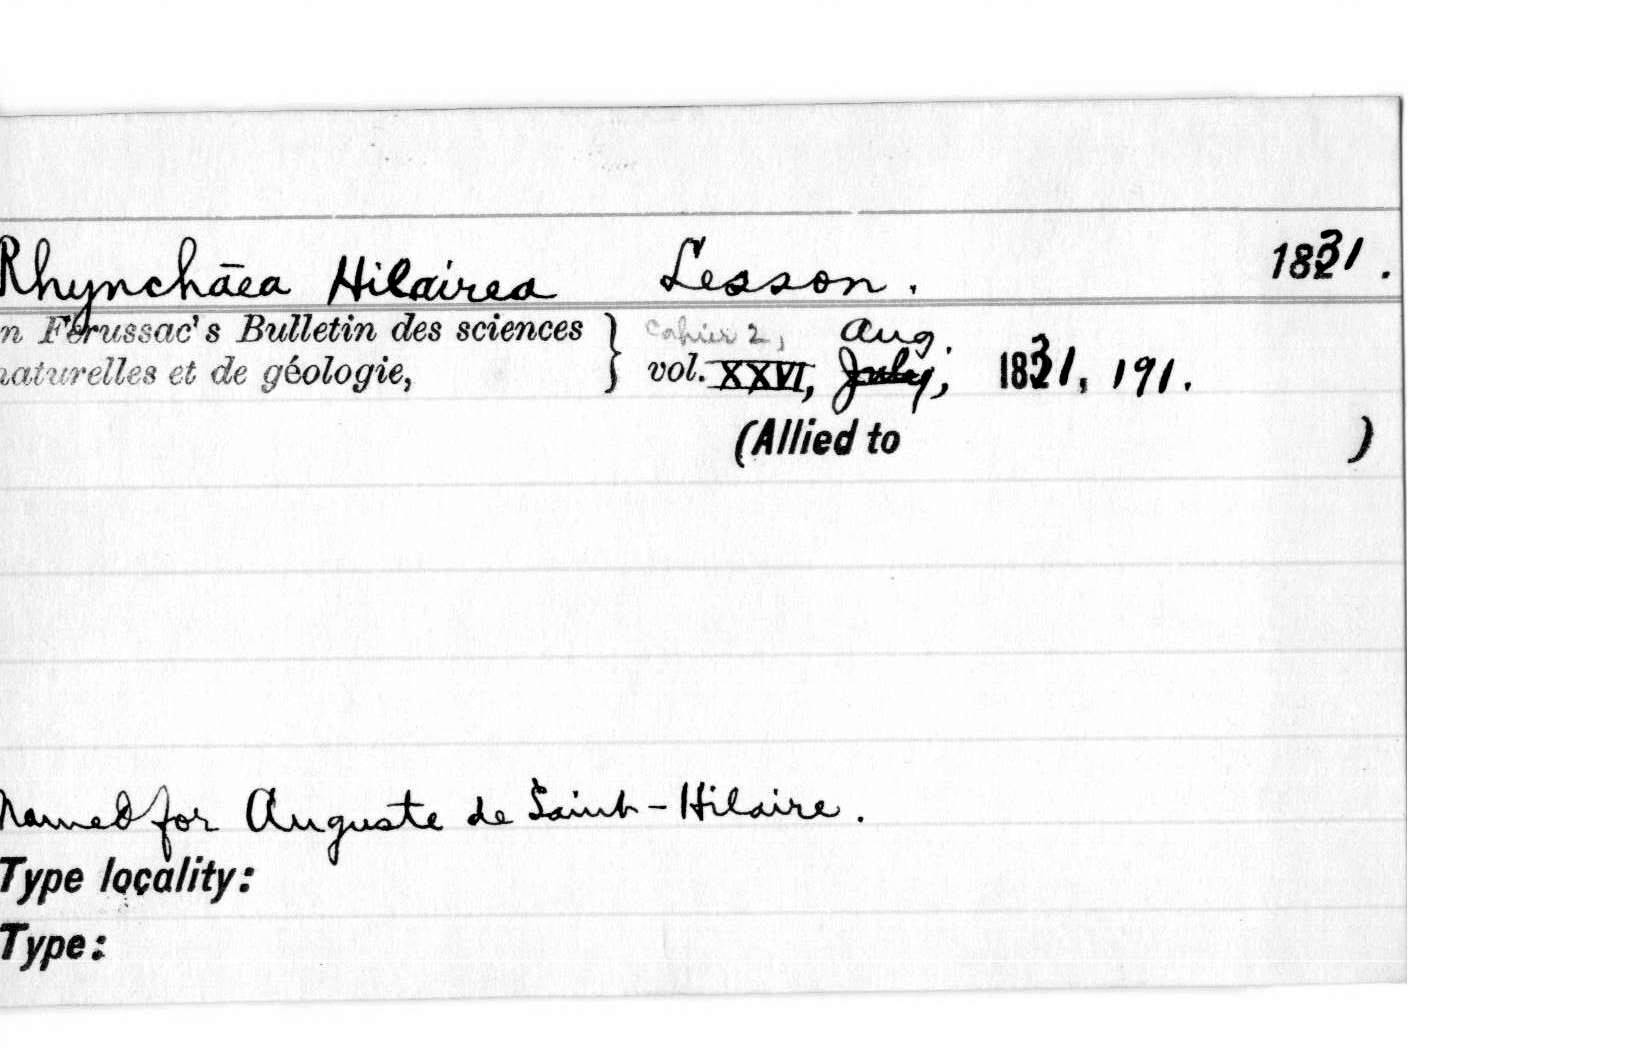 Rhynchāea Hilairea Lesson. 1831.
n Férussac's Bulletin des sciences } cahier 2, Aug.
naturelles et de géologie, vol. XXVI, July, 1831, 191.
(Allied to )
Named for Auguste de Saint-Hilaire.
Type locality:
Type: